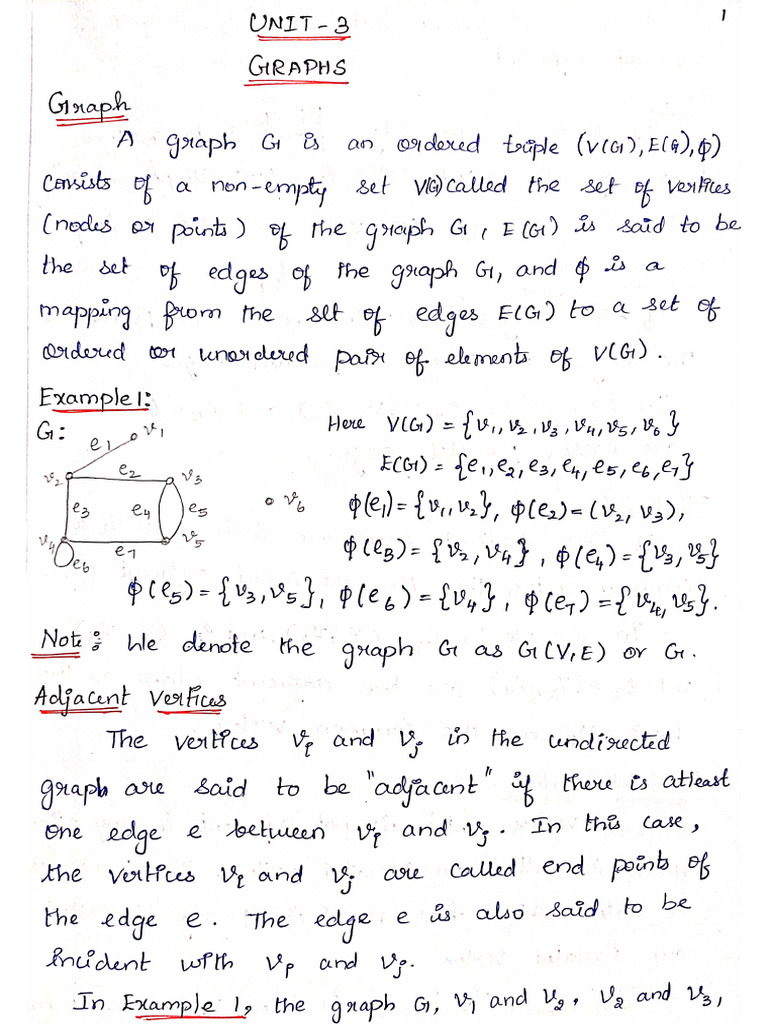 1
UNIT-3
GRAPHS
Graph
A graph G is an ordered triple (V(G), E(G), φ)
Consists of a non-empty set V(G) called the set of vertices
(nodes or points) of the graph G, E(G) is said to be
the set of edges of the graph G, and φ is a
mapping from the set of edges E(G) to a set of
ordered or unordered pair of elements of V(G).
Example 1:
G:
e1
v1
v2
e2
v3
e3
e4
e5
v6
v4
e7
v5
e6
Here V(G) = {v1, v2, v3, v4, v5, v6}
E(G) = {e1, e2, e3, e4, e5, e6, e7}
φ(e1) = {v1, v2}, φ(e2) = (v2, v3),
φ(e3) = {v2, v4}, φ(e4) = {v3, v5}
φ(e5) = {v3, v5}, φ(e6) = {v4}, φ(e7) = {v4, v5}.
Note: We denote the graph G as G(V, E) or G.
Adjacent Vertices
The vertices vi and vj in the undirected
graph are said to be "adjacent" if there is atleast
one edge e between vi and vj. In this case,
the vertices vi and vj are called end points of
the edge e. The edge e is also said to be
incident with vi and vj.
In Example 1, the graph G, v1 and v2, v2 and v3,